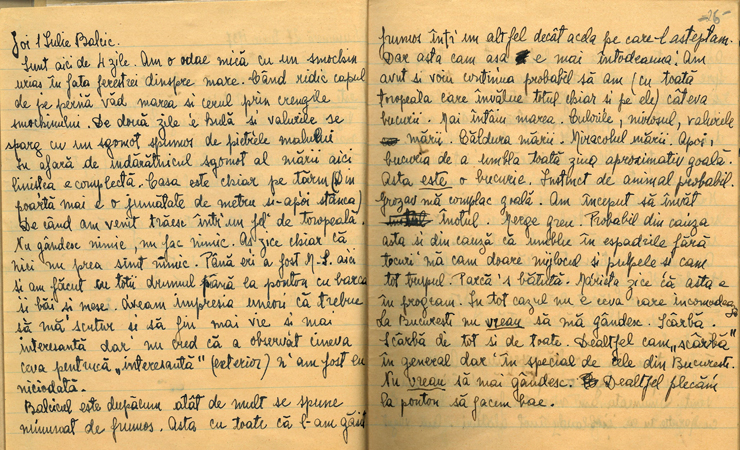 Joi 1 Iulie Balcic.
Sunt aici de 4 zile. Am o odae mică cu un smochin
urias în fata ferestrei dinspre mare. Când ridic capul
de pe pernă văd marea si cerul prin crengile
smochinului. De două zile e hulă si valurile se
sparg cu un sgomot spumos de pietrele malului
în afară de îndărătnicul sgomot al mării aici
linistea e complectă. Casa este chiar pe tărm (Din
poartă mai e o jumătate de metru si-apoi stânca)
De când am venit trăesc într'un fel de toropeală.
Nu gândesc nimic, nu fac nimic. As zice chiar că
nici nu prea simt nimic. Până eri a fost M.S. aici
si am făcut cu totii drumul până la ponton cu barca
si băi si mese. Aveam impresia uneori că trebue
să mă scutur si să fiu mai vie si mai
interesantă dar nu cred că a observat cineva
ceva pentrucă „interesantă" (exterior) n'am fost eu
niciodată.
Balcicul este după cum atât de mult se spune
minunat de frumos. Asta cu toate că l-am găsit
-26-
frumos într'un altfel decât acela pe care-l asteptam.
Dar asta cam asa e mai întodeauna. Am
avut si voiu continua probabil să am (cu toată
toropeala care învălue totul chiar si pe ele) câteva
bucurii. Mai întâiu marea. Culorile, mirosul, valurile
mării. Căldura mării. Miracolul mării. Apoi,
bucuria de a umbla toată ziua aproximativ goală.
Asta este o bucurie. Instinct de animal probabil.
Grozav mă complac goală. Am început să învăt
înotul. Merge greu. Probabil din cauza
asta si din cauză că umblu în espadrile fără
tocuri mă cam doare mijlocul si pulpele si cam
tot trupul. Parcă's bătută. Mariela zice că asta e
în program. In tot cazul nu e ceva care incomodează
La Bucuresti nu vreau să mă gândesc. Scârbă.
Scârbă de tot si de toate. Dealtfel cam „scârbă"
în general dar în special de cele din Bucuresti.
Nu vreau să mai gândesc. Dealtfel plecăm
la ponton să facem bae.